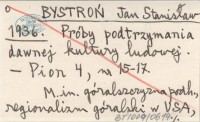 BYSTROŃ Jan Stanisław
1936. Próby podtrzymania
dawnej kultury ludowej.
– Pion 4, nr 15-17.
M. in. góralszczyzna podh.,
regionalizm góralski w USA,